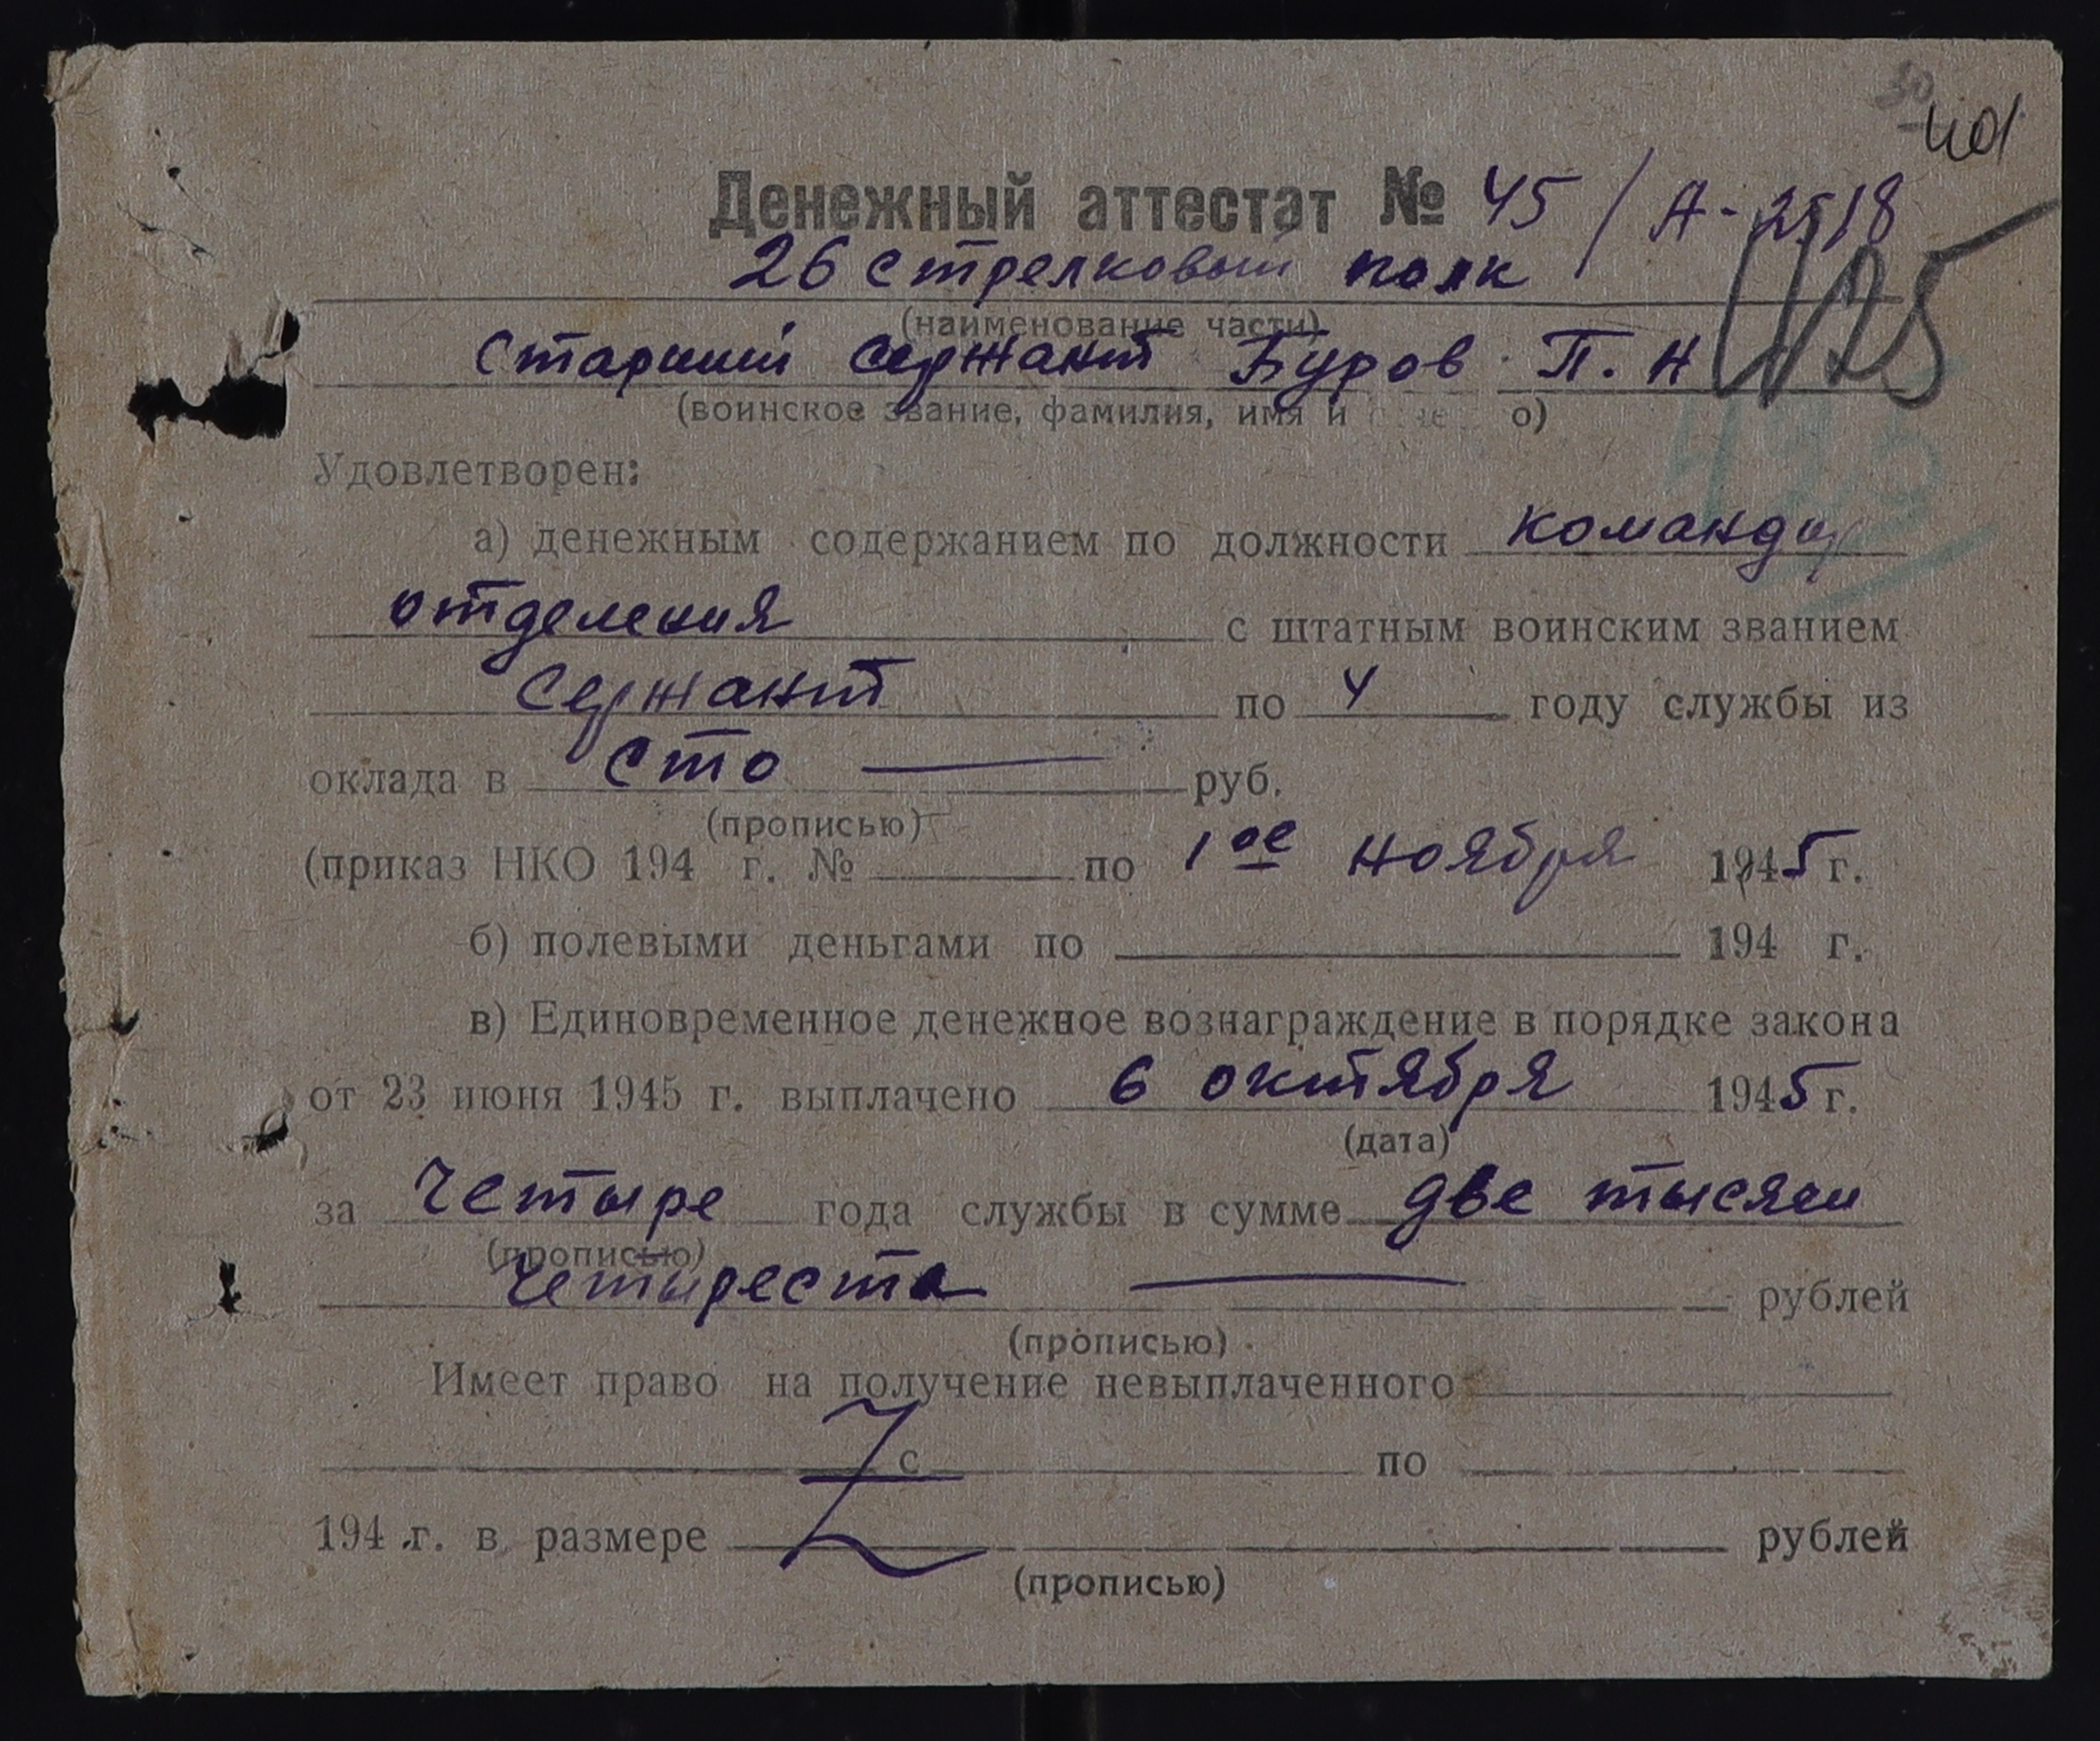 401
Денежный аттестат № 45 / А-2518
26 стрелковый полк
(наименование части)
старший сержант Буров П. Н
(воинское звание, фамилия, имя и о)
Удовлетворен:
а) денежным содержанием по должности командир
отделения с штатным воинским званием
сержант по 4 году службы из
оклада в сто руб.
(прописью)
(приказ НКО 194 г. № по 1ое ноября 1945 г.
б) полевыми деньгами по 194 г.
в) Единовременное денежное вознаграждение в порядке закона
от 23 июня 1945 г. выплачено 6 октября 1945 г.
(дата)
за четыре года службы в сумме две тысячи
(прописью)
четыреста рублей
(прописью)
Имеет право на получение невыплаченного
с по
194 г. в размере рублей
(прописью)